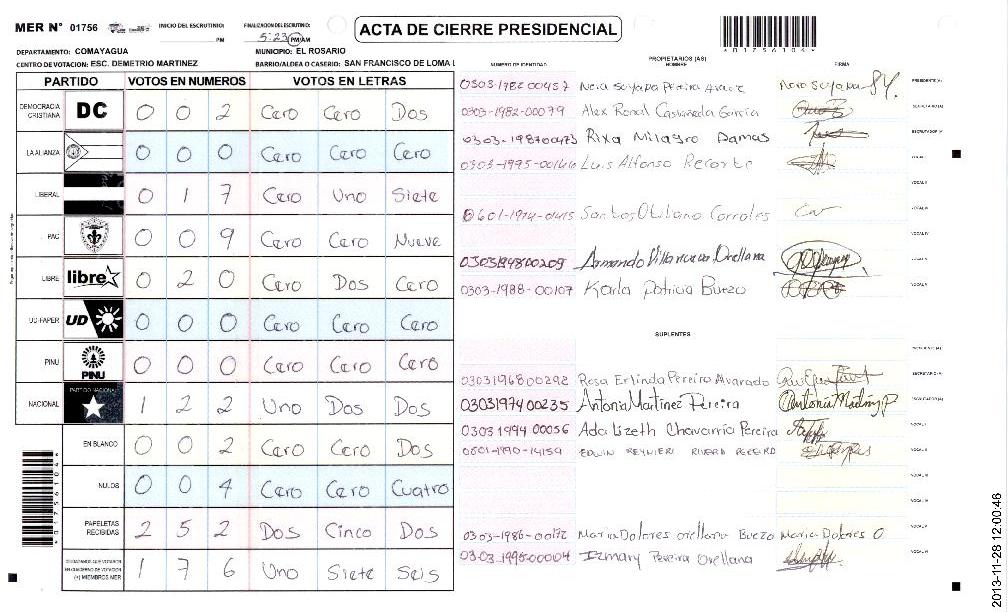 MER N° 01756
INICIO DEL ESCRUTINIO: PM
FINALIZACION DEL ESCRUTINIO: 5:23 PM/AM
ACTA DE CIERRE PRESIDENCIAL
DEPARTAMENTO: COMAYAGUA
MUNICIPIO: EL ROSARIO
CENTRO DE VOTACION: ESC. DEMETRIO MARTINEZ
BARRIO/ALDEA O CASERIO: SAN FRANCISCO DE LOMA L
PARTIDO VOTOS EN NUMEROS VOTOS EN LETRAS
DEMOCRACIA CRISTIANA DC 0 0 2 Cero Cero Dos
LA ALIANZA 0 0 0 Cero Cero Cero
LIBERAL 0 1 7 Cero Uno Siete
PAC 0 0 9 Cero Cero Nueve
LIBRE libre 0 2 0 Cero Dos Cero
UD-FAPER UD 0 0 0 Cero Cero Cero
PINU PINU 0 0 0 Cero Cero Cero
NACIONAL PARTIDO NACIONAL 1 2 2 Uno Dos Dos
EN BLANCO 0 0 2 Cero Cero Dos
NULOS 0 0 4 Cero Cero Cuatro
PAPELETAS RECIBIDAS 2 5 2 Dos Cinco Dos
CIUDADANOS QUE VOTARON EN CUADERNO DE VOTACION (+) MIEMBROS MER 1 7 6 Uno Siete Seis
PROPIETARIOS (AS)
NUMERO DE IDENTIDAD NOMBRE FIRMA
0303-1982 00457 Pereira PRESIDENTE(A)
0303-1982-00079 Alex Ronal Castañeda Garcia SECRETARIO(A)
0303-198700473 Rixa Milagro Damas ESCRUTADOR(A)
0303-1995-00166 Luis Alfonso Recarte VOCAL I
VOCAL II
0601-1974-0415 Santos Corrales VOCAL III
VOCAL IV
0303194800209 Armando Orellana VOCAL V
0303-1988-00107 Karla Patricia Buezo VOCAL VI
SUPLENTES
PRESIDENTE(A)
0303196800292 Rosa Erlinda Pereira Alvarado SECRETARIO(A)
0303197400235 Antonia Martinez Pereira Antonia Martinez P ESCRUTADOR(A)
0303 1994 00056 Ada Lizeth Chavarria Pereira VOCAL I
0601-1990-14159 EDWIN REYNIERI RIVERA PEREIRA VOCAL II
VOCAL III
VOCAL IV
0303-1986-00172 Maria Dolores orellana Buezo Maria Dolores O VOCAL V
0303-199500004 Izmary Pereira Orellana VOCAL VI
*01756104*
2013-11-28 12:00:46